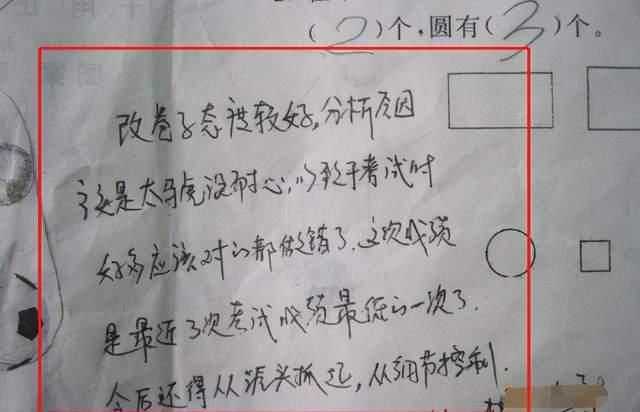 (2)个,圆有(3)个。
改卷子态度较好,分析原因
主要是太马虎没耐心,以致于考试时
好多应该对的都做错了.这次成绩
是最近3次考试成绩最低的一次了.
今后还得从源头抓起,从细节控制.